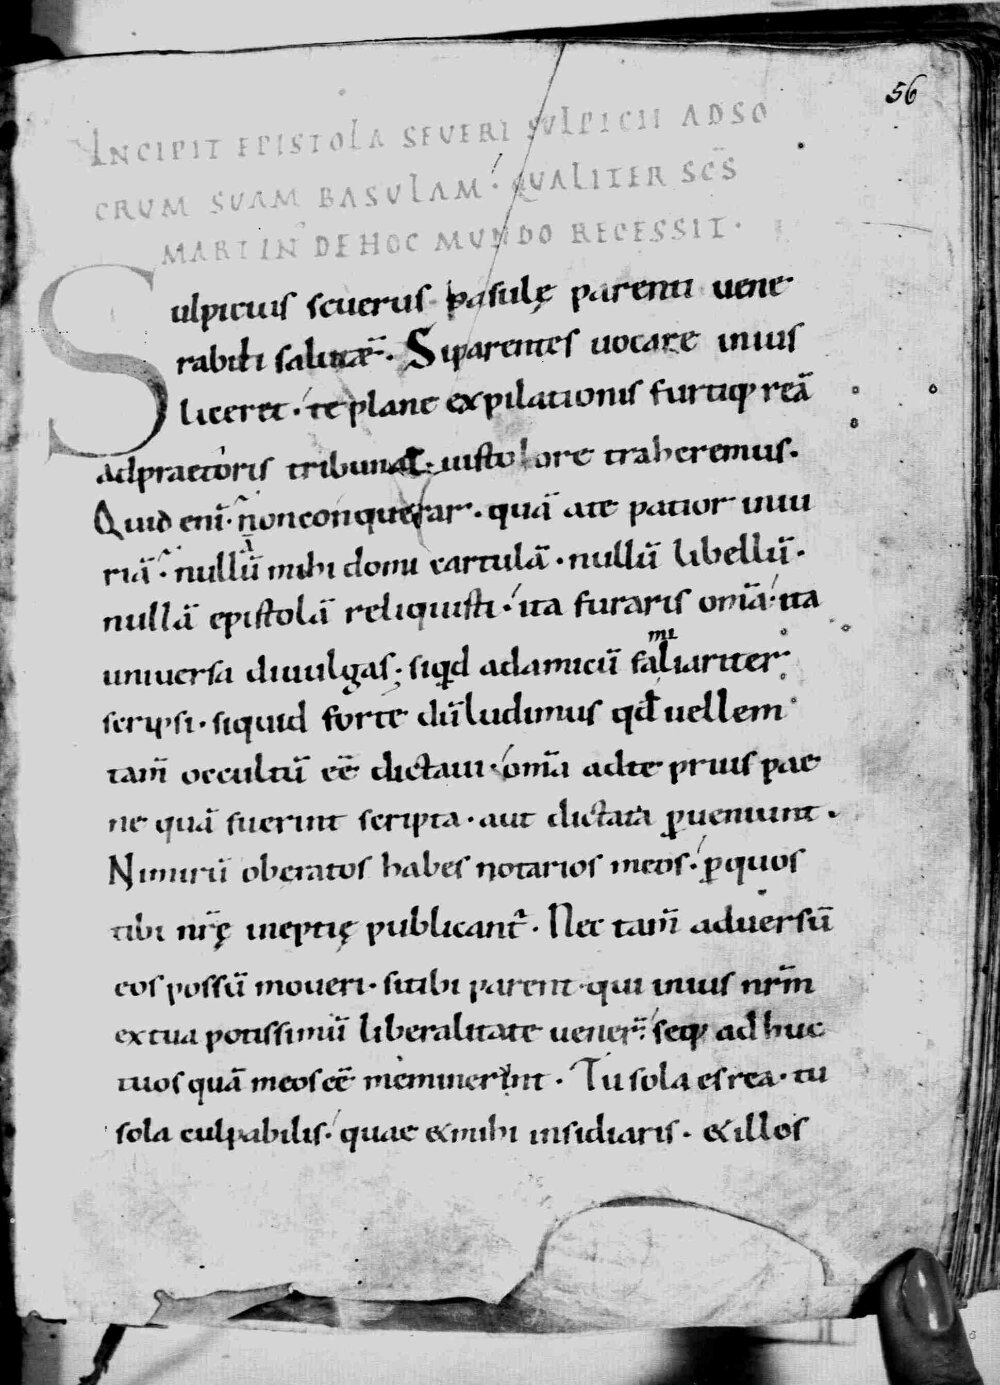 56
INCIPIT EPISTOLA SEVERI SULPICII AD SO
CRUM SUAM BASULAM· QUALITER SC̄S
MARTIN' DE HOC MUNDO RECESSIT·
Sulpicius severus basulę parenti uene
rabili salutǣ. Si parentes uocare inius
liceret· te plane expilationis furtiq; reā
ad praetoris tribunal· iusto dolore traheremus.
Quid eni̅· n̅on conquerar· quā a te patior iniu
riā· nullū mihi domi cartulā· nullū libellū·
nullā epistolā reliquisti· ita furaris om̅a· ita
uniuersa diuulgas; siq̄d ad amicū familiariter
scripsi· siquid forte dū ludimus qd̄ uellem
tam̄ occultū eē dictaui· om̅a ad te prius pae
ne quā fuerint scripta· aut dictata p̱ueniunt.
Nimirū oberatos habes notarios meos· p̱ quos
tibi nr̄ę ineptię publicant᷑. Nec tam̄ aduersū
eos possū moueri· si tibi parent· qui inius nr̄m
ex tua potissimū liberalitate uener̄· seq; adhuc
tuos quā meos eē meminerint. Tu sola es rea· tu
sola culpabilis· quae & mihi insidiaris· & illos